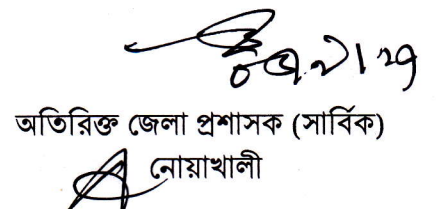 অতিরিক্ত জেলা প্রশাসক (সার্বিক)
নোয়াখালী